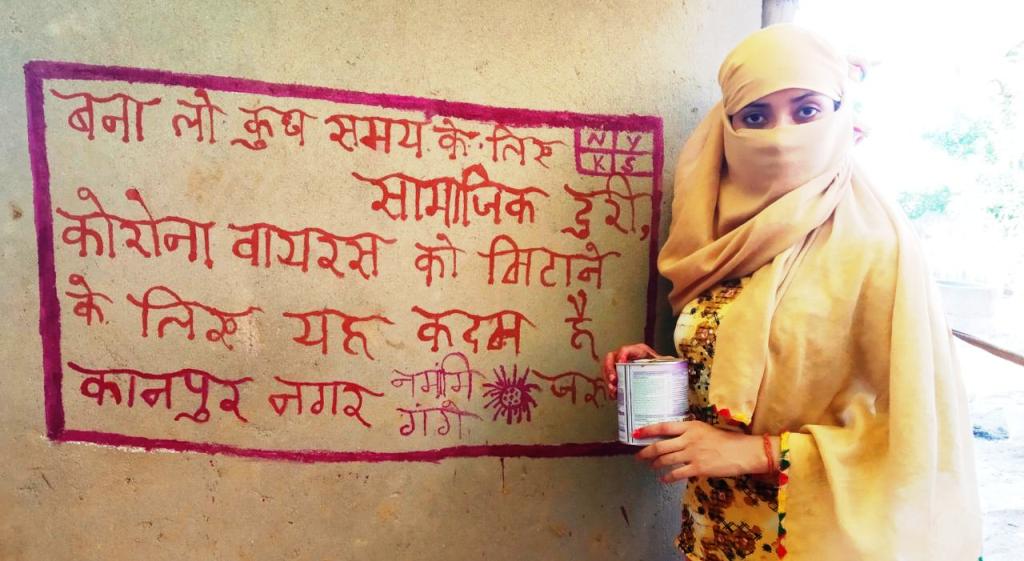 बना लो कुछ समय के लिए
N Y
K S
सामाजिक दुरी,
कोरोना वायरस को मिटाने
के लिए यह कदम है
कानपुर नगर
नमामि
गंगे